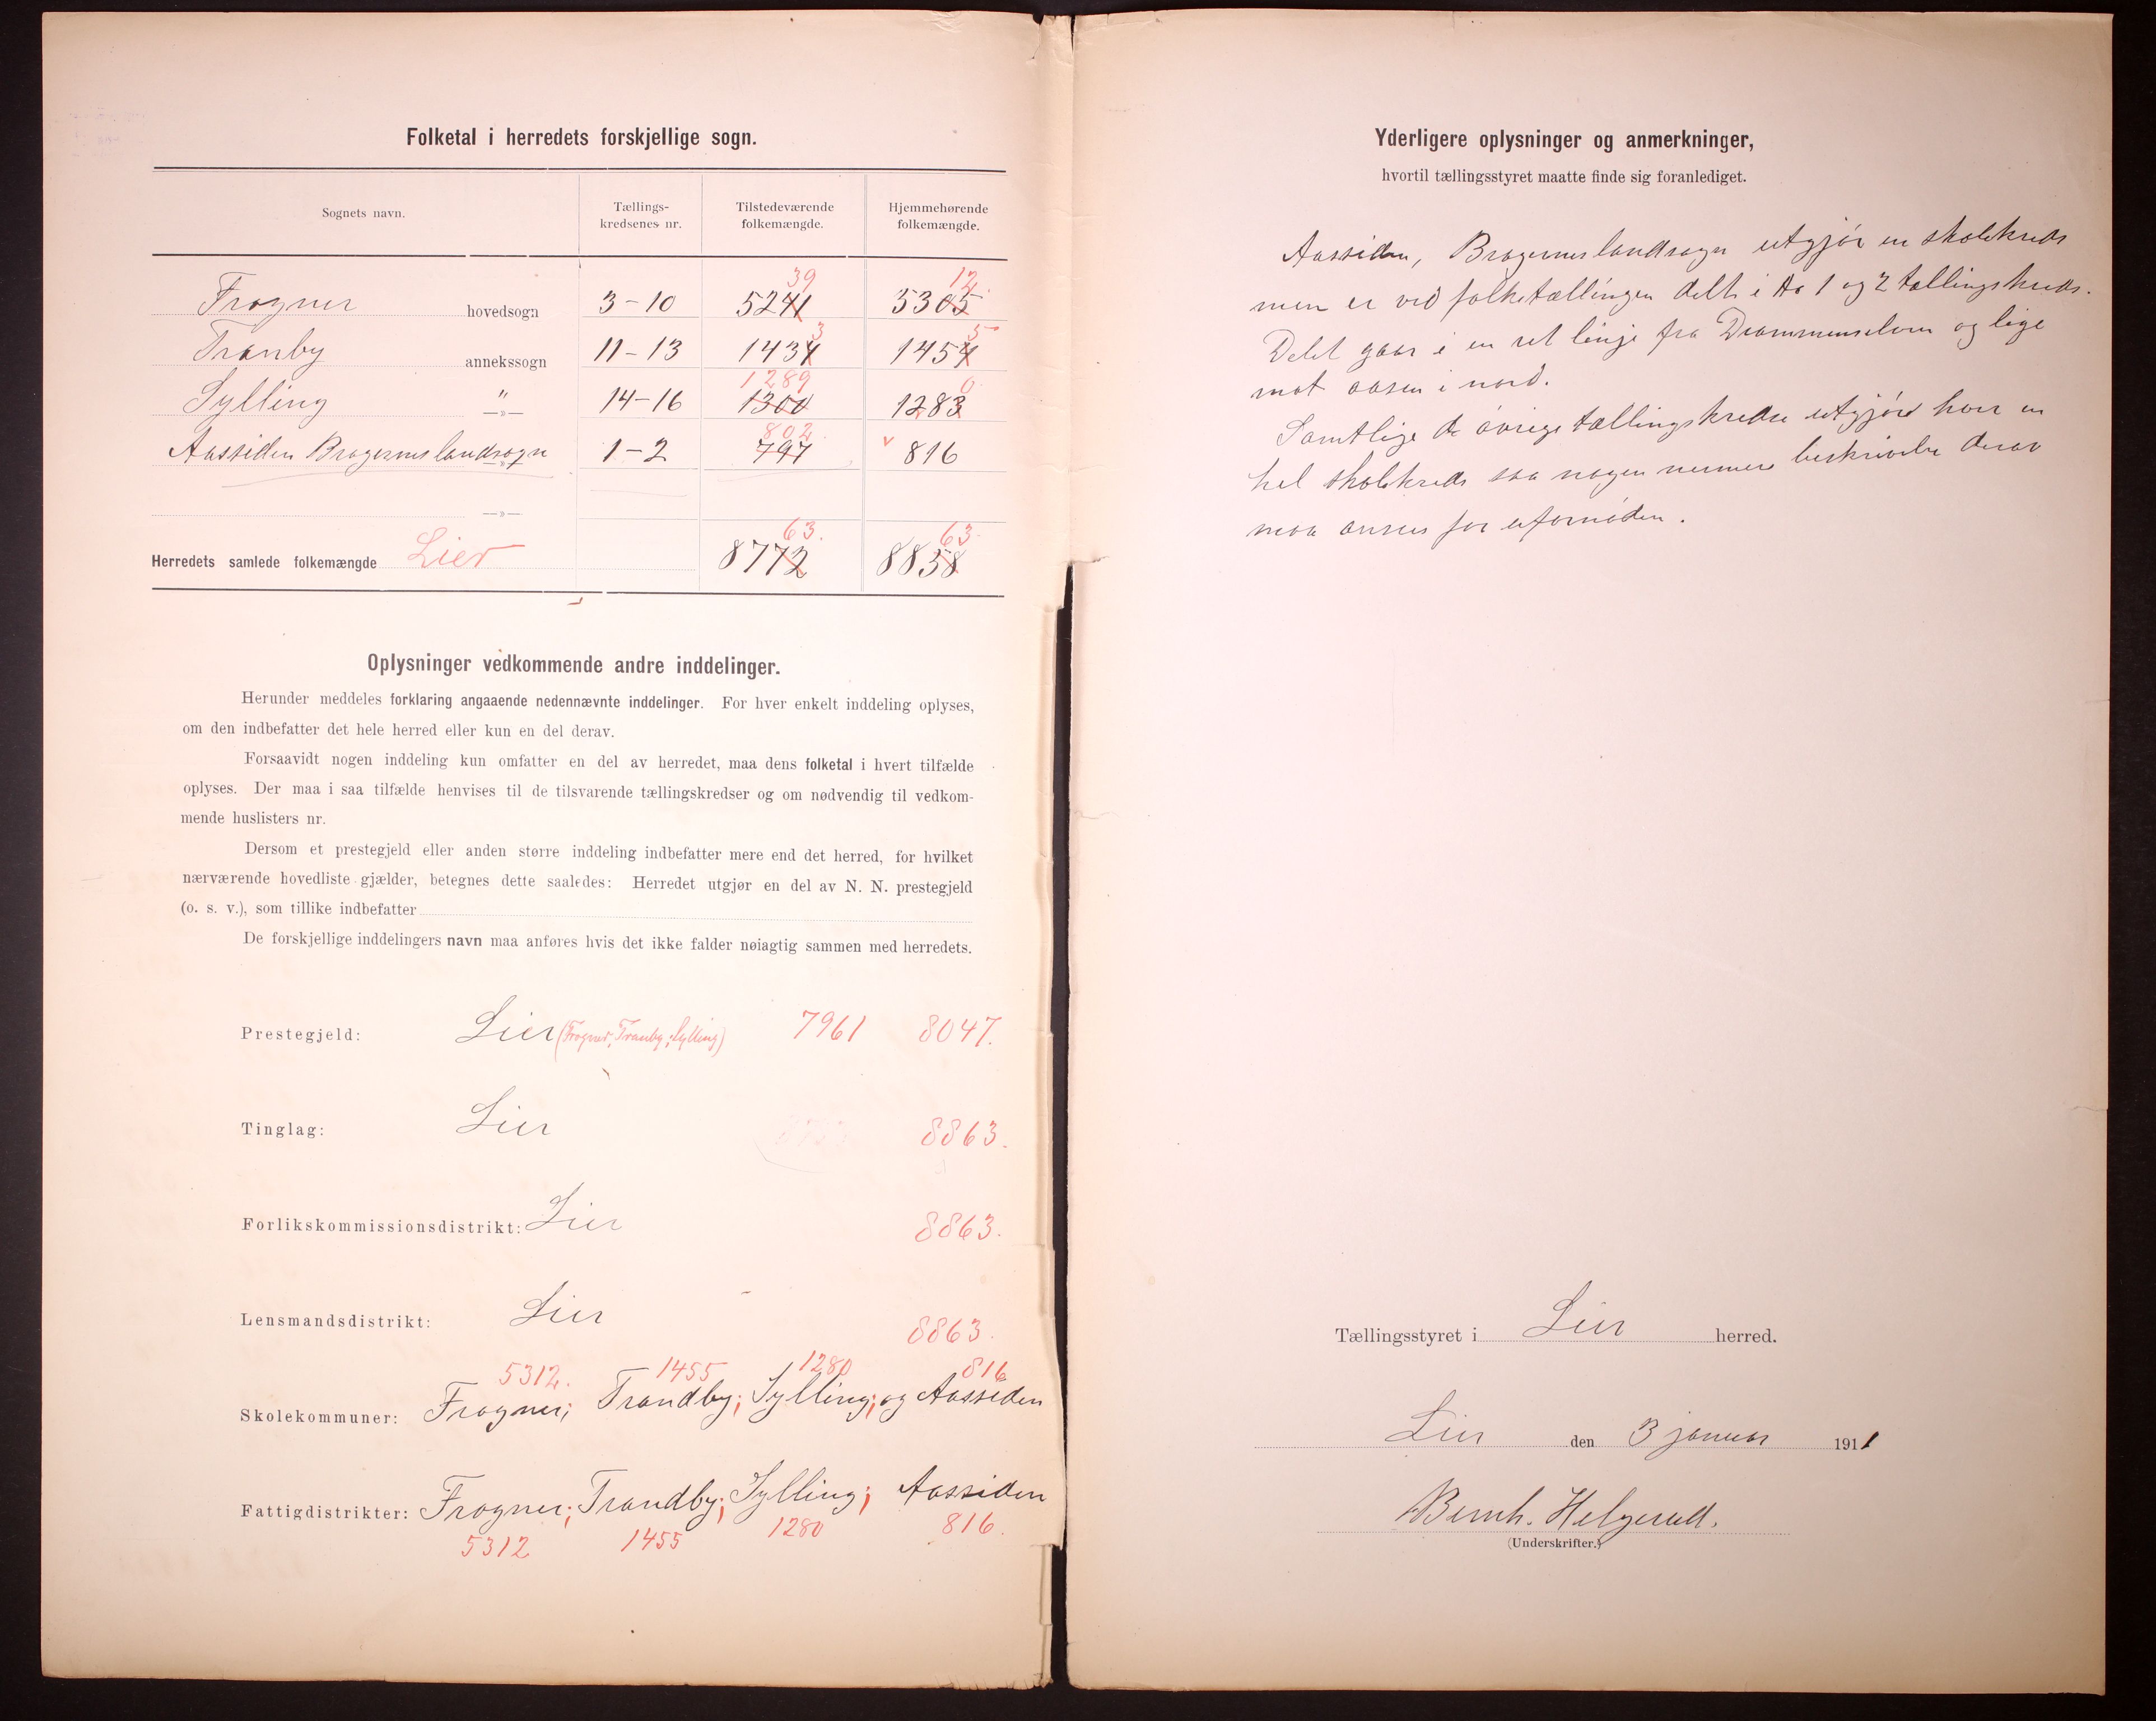 Folketal i herredets forskjellige sogn.
Sognets navn.
Tællings-
kredsenes nr.
Tilstedeværende
folkemængde.
Hjemmehørende
folkemængde.
39 12
Frogner hovedsogn 3-10 5241 5305
3 5
Tranby annekssogn 11-13 1434 1454
1289 0
Sylling " —»— 14-16 1300 1283
802
Aassiden Bragernes landsogn 1-2 797 v 816
—»—
63. 63
Herredets samlede folkemængde Lier 8772 8858
Oplysninger vedkommende andre inddelinger.
Herunder meddeles forklaring angaaende nedennævnte inddelinger. For hver enkelt inddeling oplyses,
om den indbefatter det hele herred eller kun en del derav.
Forsaavidt nogen inddeling kun omfatter en del av herredet, maa dens folketal i hvert tilfælde
oplyses. Der maa i saa tilfælde henvises til de tilsvarende tællingskredser og om nødvendig til vedkom-
mende huslisters nr.
Dersom et prestegjeld eller anden større inddeling indbefatter mere end det herred, for hvilket
nærværende hovedliste gjælder, betegnes dette saaledes: Herredet utgjør en del av N. N. prestegjeld
(o. s. v.), som tillike indbefatter
De forskjellige inddelingers navn maa anføres hvis det ikke falder nøiagtig sammen med herredets.
Prestegjeld: Lier (Frogner, Tranby, Sylling) 7961 8047.
Tinglag: Lier 8863.
Forlikskommissionsdistrikt: Lier 8863.
Lensmandsdistrikt: Lier 8863.
5312. 1455 1280 816
Skolekommuner: Frogner; Trandby; Sylling; og Aassiden
Fattigdistrikter: Frogner; Trandby; Sylling; Aassiden
5312 1455 1280 816.
Yderligere oplysninger og anmerkninger,
hvortil tællingsstyret maatte finde sig foranlediget.
Aassiden, Bragernes landsogn utgjør en skolekreds
men er ved folketællingen delt i No 1 og 2 tællingskreds.
Delet gaar i en ret linje fra Drammenselven og lige
mot aasen i nord.
Samtlige de øvrige tællingskredse utgjøre hver en
hel skolekreds saa nogen nermere beskrivelse derav
maa ansees for ufornøden.
Tællingsstyret i Lier herred.
Lier den 3 januar 1911
Bernh. Helgerud.
(Underskrifter.)